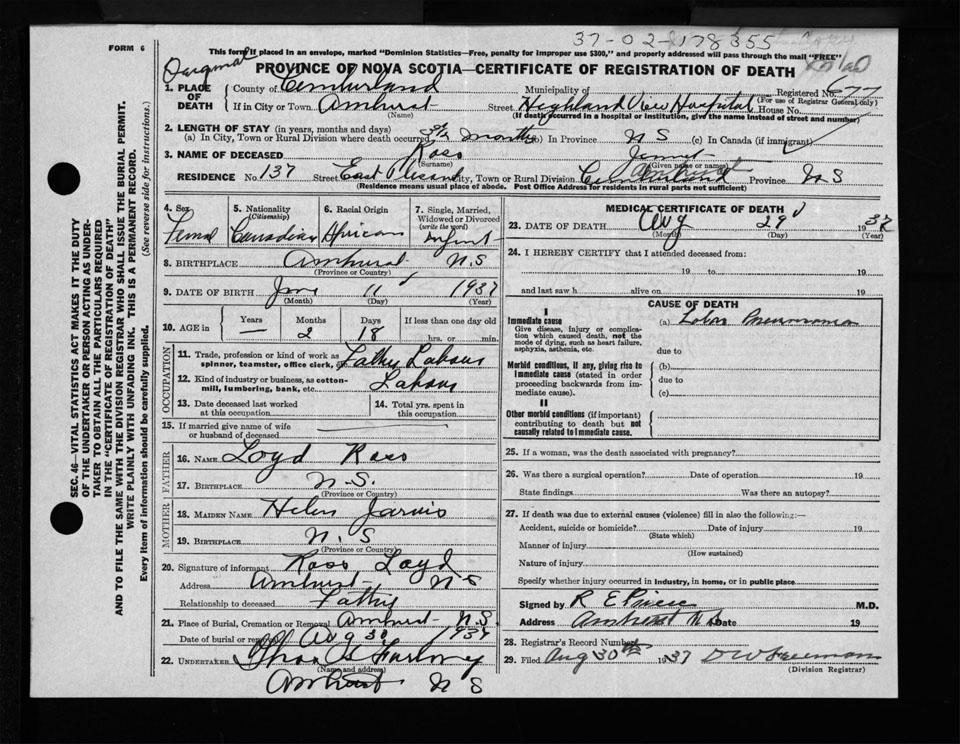 37-02-178355
FORM 6
This form if placed in an envelope, marked "Dominion Statistics—Free, penalty for improper use $300," and properly addressed will pass through the mail "FREE"
PROVINCE OF NOVA SCOTIA—CERTIFICATE OF REGISTRATION OF DEATH
1. PLACE OF DEATH
County of Cumberland Municipality of Registered No. 677
(For use of Registrar General only)
If in City or Town Amherst Street Highland View Hospital House No.
(Name) (If death occurred in a hospital or institution, give the name instead of street and number)
2. LENGTH OF STAY (in years, months and days)
(a) In City, Town or Rural Division where death occurred months (b) In Province N S (c) In Canada (if immigrant)
3. NAME OF DECEASED Ross
(Surname) (Given name or names)
RESIDENCE No. 137 Street East Pleasant City, Town or Rural Division Amherst Cumberland Province N S
(Residence means usual place of abode. Post Office Address for residents in rural parts not sufficient)
SEC. 46—VITAL STATISTICS ACT MAKES IT THE DUTY
OF THE UNDERTAKER OR PERSON ACTING AS UNDER-
TAKER TO OBTAIN ALL THE PARTICULARS REQUIRED
IN THE "CERTIFICATE OF REGISTRATION OF DEATH"
AND TO FILE THE SAME WITH THE DIVISION REGISTRAR WHO SHALL ISSUE THE BURIAL PERMIT.
WRITE PLAINLY WITH UNFADING INK. THIS IS A PERMANENT RECORD.
Every item of information should be carefully supplied. (See reverse side for instructions.)
4. Sex
Female
5. Nationality
(Citizenship)
Canadian
6. Racial Origin
African
7. Single, Married, Widowed or Divorced
(write the word)
Infant
8. BIRTHPLACE Amherst N.S
(Province or Country)
9. DATE OF BIRTH June 11 1937
(Month) (Day) (Year)
10. AGE in Years — Months 2 Days 18 If less than one day old
hrs. or min.
OCCUPATION
11. Trade, profession or kind of work as
spinner, teamster, office clerk, etc. Labour
12. Kind of industry or business, as cotton-
mill, lumbering, bank, etc. Labour
13. Date deceased last worked
at this occupation
14. Total yrs. spent in
this occupation
15. If married give name of wife
or husband of deceased
FATHER
16. NAME Loyd Ross
17. BIRTHPLACE N.S.
(Province or Country)
MOTHER
18. MAIDEN NAME Helen Jarvis
19. BIRTHPLACE N. S
(Province or Country)
20. Signature of informant Ross Loyd
Address Amherst N S
Relationship to deceased Father
21. Place of Burial, Cremation or Removal Amherst N.S.
Date of burial or removal Aug 30 1937
22. UNDERTAKER
(Name and address)
Amherst N S
MEDICAL CERTIFICATE OF DEATH
23. DATE OF DEATH Aug 29 1937
(Month) (Day) (Year)
24. I HEREBY CERTIFY that I attended deceased from:
19 to 19
and last saw h alive on 19
CAUSE OF DEATH
I
Immediate cause
Give disease, injury or complica-
tion which caused death, not the
mode of dying, such as heart failure,
asphyxia, asthenia, etc.
(a) Lobar Pneumonia
due to
Morbid conditions, if any, giving rise to
immediate cause (stated in order
proceeding backwards from im-
mediate cause).
(b)
due to
(c)
II
Other morbid conditions (if important)
contributing to death but not
causally related to immediate cause.
25. If a woman, was the death associated with pregnancy?
26. Was there a surgical operation? Date of operation 19
State findings Was there an autopsy?
27. If death was due to external causes (violence) fill in also the following:—
Accident, suicide or homicide? Date of injury 19
(State which)
Manner of injury
(How sustained)
Nature of injury
Specify whether injury occurred in industry, in home, or in public place
Signed by R E Price M.D.
Address Amherst N S Date 19
28. Registrar's Record Number
29. Filed Aug 30th 1937
(Division Registrar)